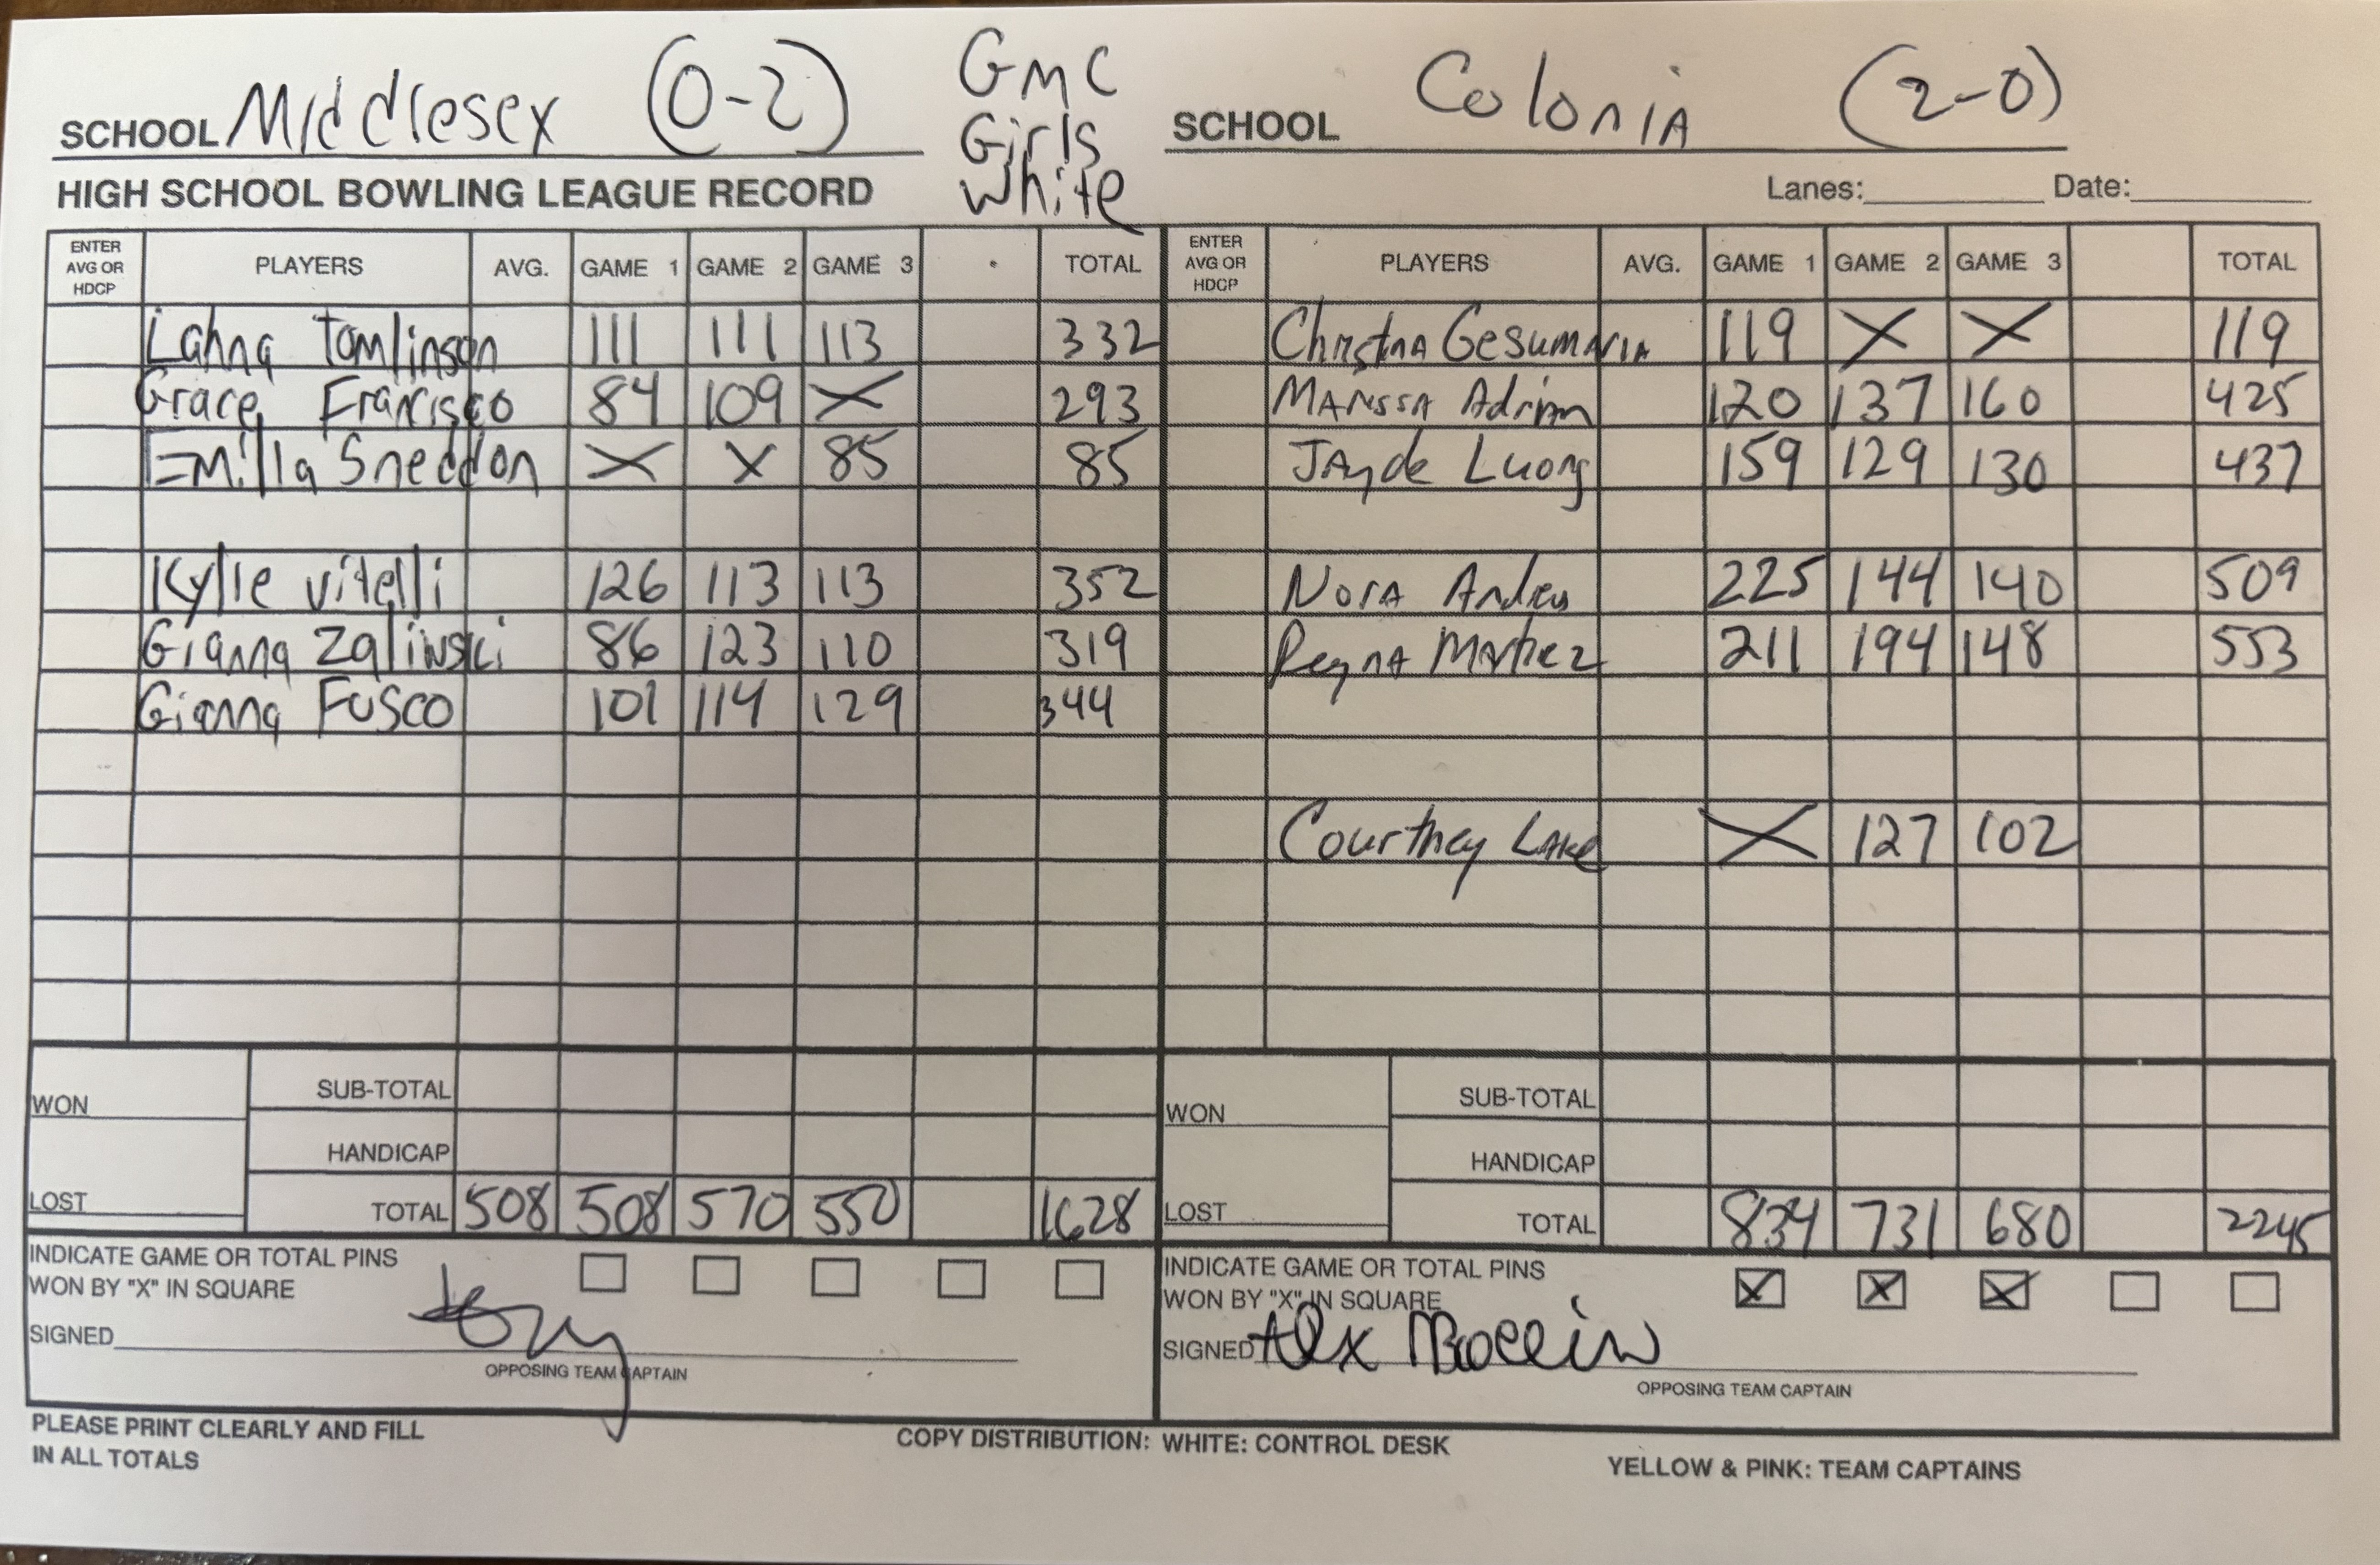 SCHOOL Middlesex (0-2)
GMC
Girls
White
SCHOOL Colonia (2-0)
HIGH SCHOOL BOWLING LEAGUE RECORD
Lanes: Date:
ENTER AVG OR HDCP PLAYERS AVG. GAME 1 GAME 2 GAME 3 TOTAL ENTER AVG OR HDCP PLAYERS AVG. GAME 1 GAME 2 GAME 3 TOTAL
Lahna Tomlinson 111 111 113 332 Christna Gesumaria 119 X X 119
Grace Francisco 84 109 X 293 Marissa Adrian 120 137 160 425
Emilla Sneddon X X 85 85 Jayde Luong 159 129 130 437
Kylie Vitelli 126 113 113 352 Nora Andrews 225 144 140 509
Gianna Zaliwski 86 123 110 319 Reyna Martinez 211 194 148 553
Gianna Fusco 101 114 129 344
Courtney Lake X 127 102
SUB-TOTAL SUB-TOTAL
WON WON
HANDICAP HANDICAP
LOST TOTAL 508 508 570 550 1628 LOST TOTAL 834 731 680 2245
INDICATE GAME OR TOTAL PINS
WON BY "X" IN SQUARE
INDICATE GAME OR TOTAL PINS X X X
WON BY "X" IN SQUARE
SIGNED
OPPOSING TEAM CAPTAIN
SIGNED Alex
OPPOSING TEAM CAPTAIN
PLEASE PRINT CLEARLY AND FILL
IN ALL TOTALS
COPY DISTRIBUTION: WHITE: CONTROL DESK
YELLOW & PINK: TEAM CAPTAINS